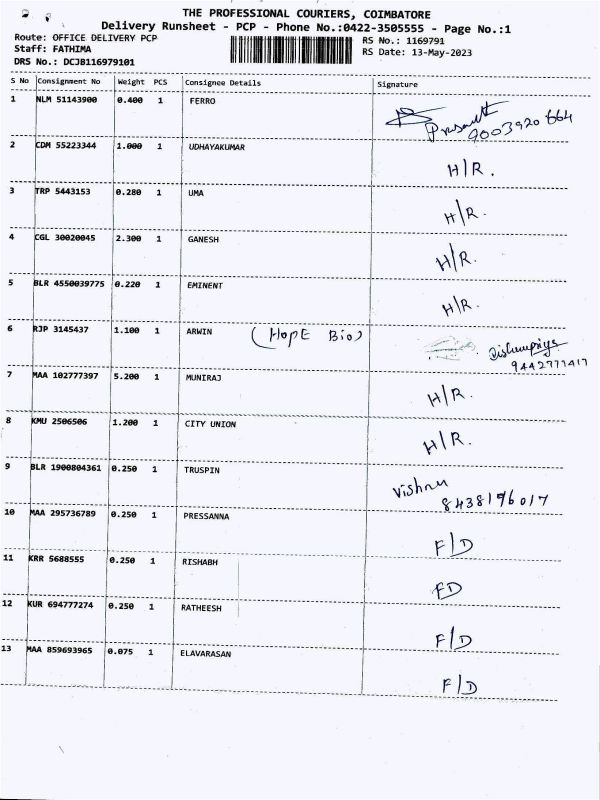 THE PROFESSIONAL COURIERS, COIMBATORE
Delivery Runsheet - PCP - Phone No.:0422-3505555 - Page No.:1
Route: OFFICE DELIVERY PCP
RS No.: 1169791
Staff: FATHIMA
RS Date: 13-May-2023
DRS No.: DCJB116979101
S No Consignment No Weight PCS Consignee Details Signature
1 NLM 51143900 0.400 1 FERRO
Prasanth
9003920664
2 CDM 55223344 1.000 1 UDHAYAKUMAR H/R.
3 TRP 5443153 0.280 1 UMA H/R.
4 CGL 30020045 2.300 1 GANESH H/R.
5 BLR 4550039775 0.220 1 EMINENT H/R.
6 RJP 3145437 1.100 1 ARWIN (HOPE Bio)
9442971417
7 MAA 102777397 5.200 1 MUNIRAJ H/R.
8 KMU 2506506 1.200 1 CITY UNION H/R.
9 BLR 1900804361 0.250 1 TRUSPIN Vishnu
8438196017
10 MAA 295736789 0.250 1 PRESSANNA F/D
11 KRR 5688555 0.250 1 RISHABH FD
12 KUR 694777274 0.250 1 RATHEESH F/D
13 MAA 859693965 0.075 1 ELAVARASAN F/D